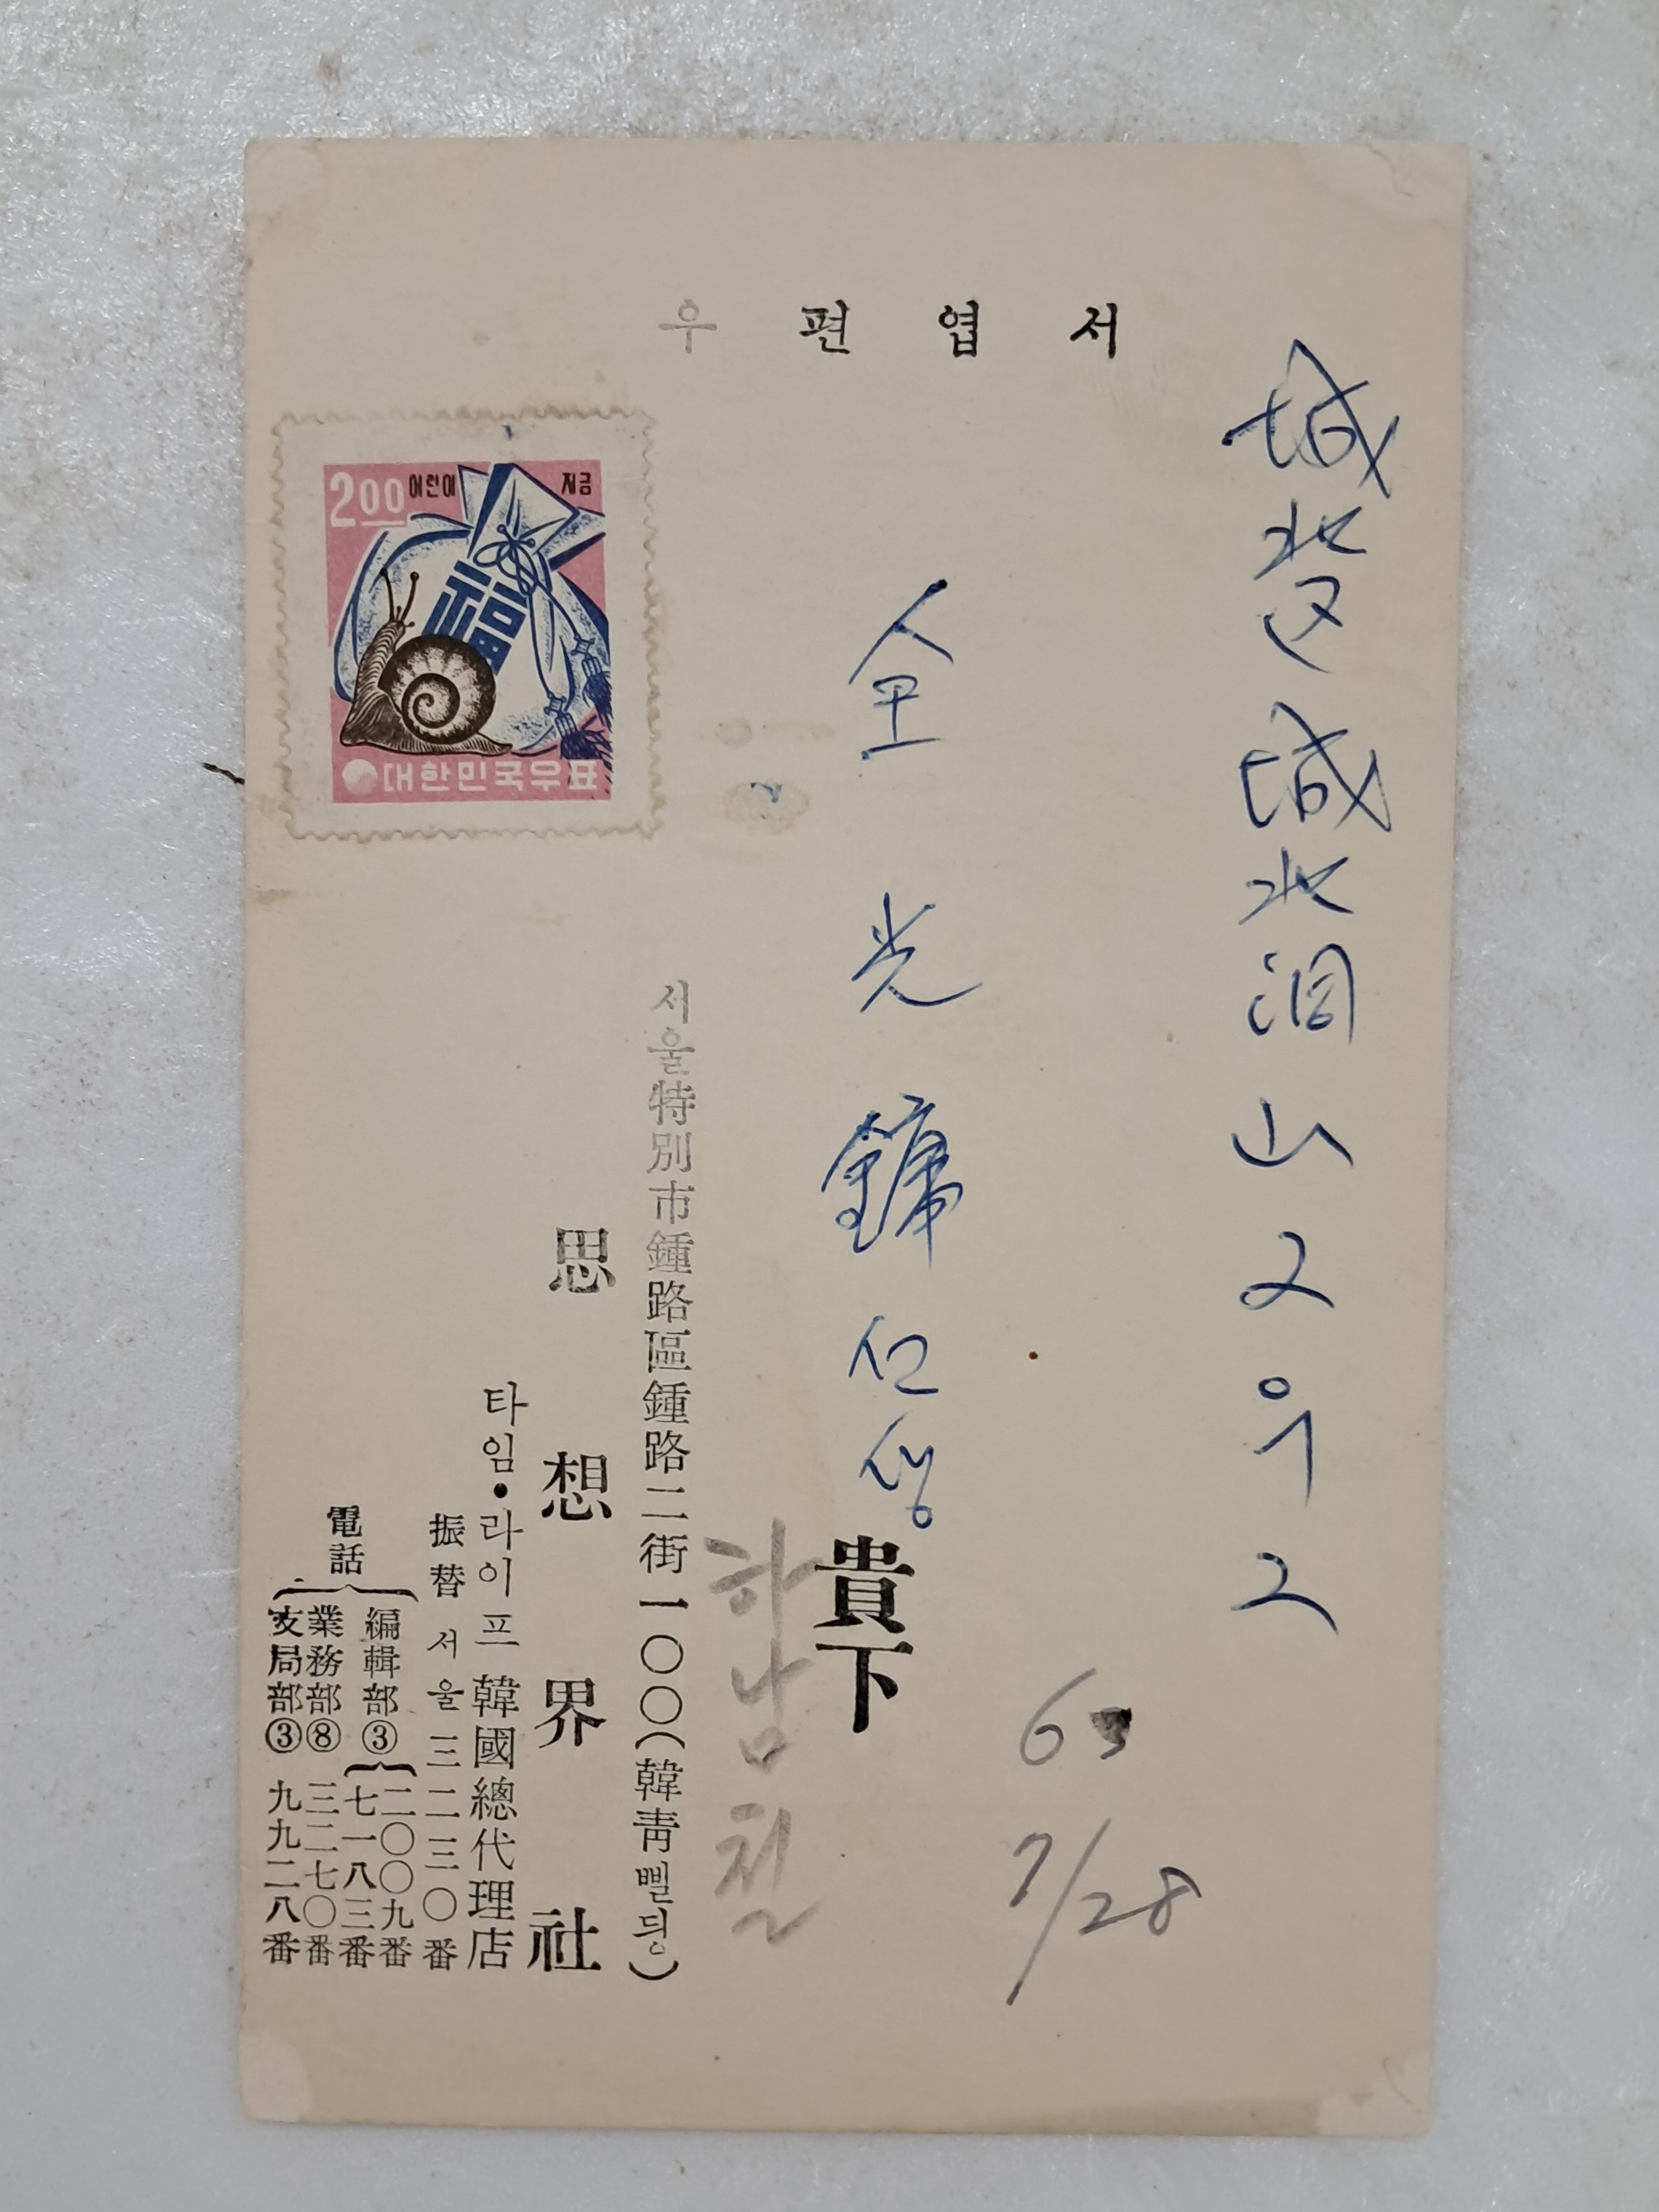 우편엽서
城北区 城北洞 山 2의 2
全光鏞 선생
貴下
63
7/28
하남철
서울特別市鍾路區鍾路二街一〇〇(韓靑삘딍)
思想界社
타임•라이프 韓國總代理店
振替 서울 三二三〇番
電話
編輯部③ 二〇〇九番
七一八三番
業務部⑧ 三二七〇番
支局部③ 九九二八番
200 어린이 저금
福
대한민국우표